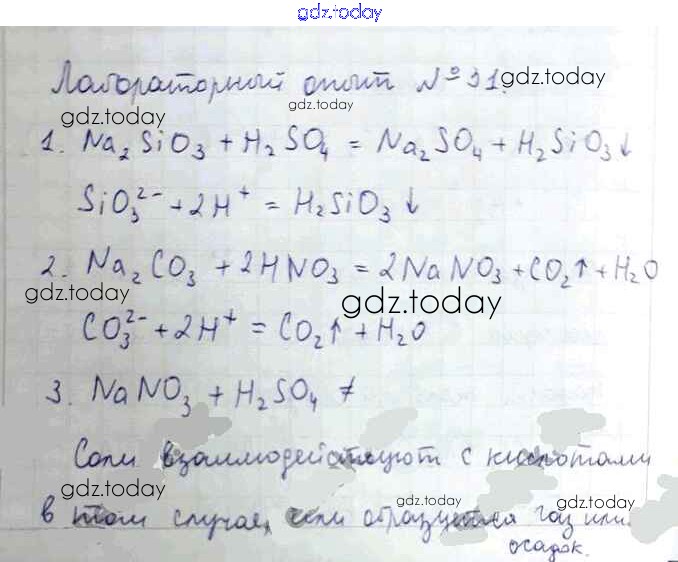 gdz.today
Лабораторный опыт №31. gdz.today
gdz.today gdz.today
1. Na₂SiO₃ + H₂SO₄ = Na₂SO₄ + H₂SiO₃↓
SiO₃²⁻ + 2H⁺ = H₂SiO₃↓
2. Na₂CO₃ + 2HNO₃ = 2NaNO₃ + CO₂↑ + H₂O
gdz.today gdz.today
CO₃²⁻ + 2H⁺ = CO₂↑ + H₂O
3. NaNO₃ + H₂SO₄ ≠
Соли взаимодействуют с кислотами
gdz.today gdz.today gdz.today
в том случае, если образуется газ или
осадок.